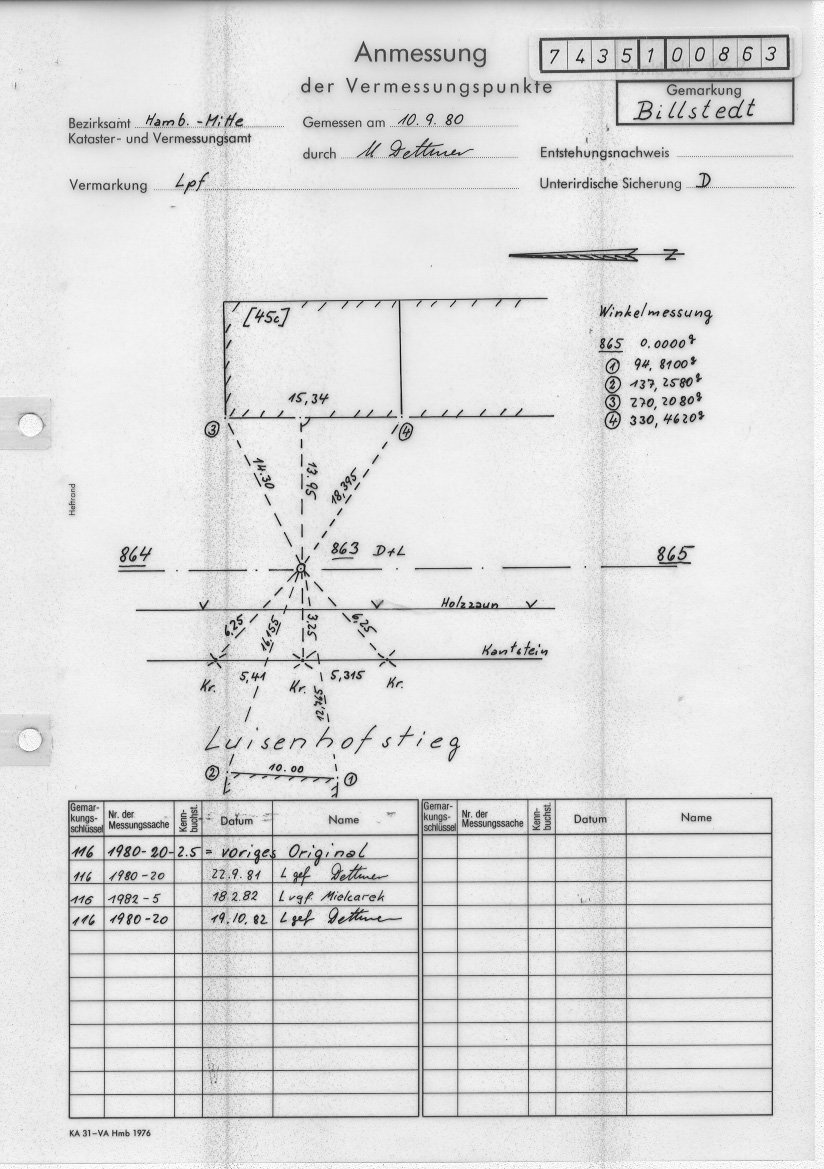 Anmessung
7435100863
der Vermessungspunkte
Gemarkung
Billstedt
Bezirksamt Hamb.-Mitte
Gemessen am 10.9.80
Kataster- und Vermessungsamt
durch M Dettmer
Entstehungsnachweis
Vermarkung Lpf
Unterirdische Sicherung D
N
[45c]
Winkelmessung
865 0.0000g
① 94,8100g
② 137,2580g
③ 270,2080g
④ 330,4620g
15,34
③
④
14.30
13.95
18,395
Heftrand
864
863 D+L
865
Holzzaun
6,25
16,155
3,25
6,25
Kantstein
5,41
5,315
Kr.
Kr.
Kr.
12,765
Luisenhofstieg
②
10.00
①
Gemar-kungs-schlüssel Nr. der Messungssache Kenn-buchst. Datum Name Gemar-kungs-schlüssel Nr. der Messungssache Kenn-buchst. Datum Name
116 1980-20-2.5 = voriges Original
116 1980-20 22.9.81 L gef Dettmer
116 1982-5 18.2.82 L vgf. Mielcarek
116 1980-20 19.10.82 L gef Dettmer
KA 31-VA Hmb 1976